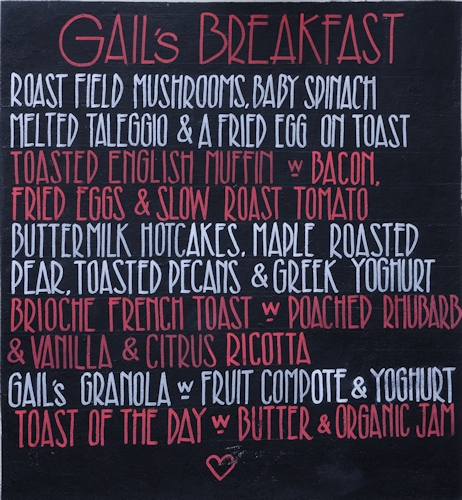 GAIL's BREAKFAST
ROAST FIELD MUSHROOMS, BABY SPINACH
MELTED TALEGGIO & A FRIED EGG ON TOAST
TOASTED ENGLISH MUFFIN w BACON,
FRIED EGGS & SLOW ROAST TOMATO
BUTTERMILK HOTCAKES, MAPLE ROASTED
PEAR, TOASTED PECANS & GREEK YOGHURT
BRIOCHE FRENCH TOAST w POACHED RHUBARB
& VANILLA & CITRUS RICOTTA
GAIL's GRANOLA w FRUIT COMPOTE & YOGHURT
TOAST OF THE DAY w BUTTER & ORGANIC JAM